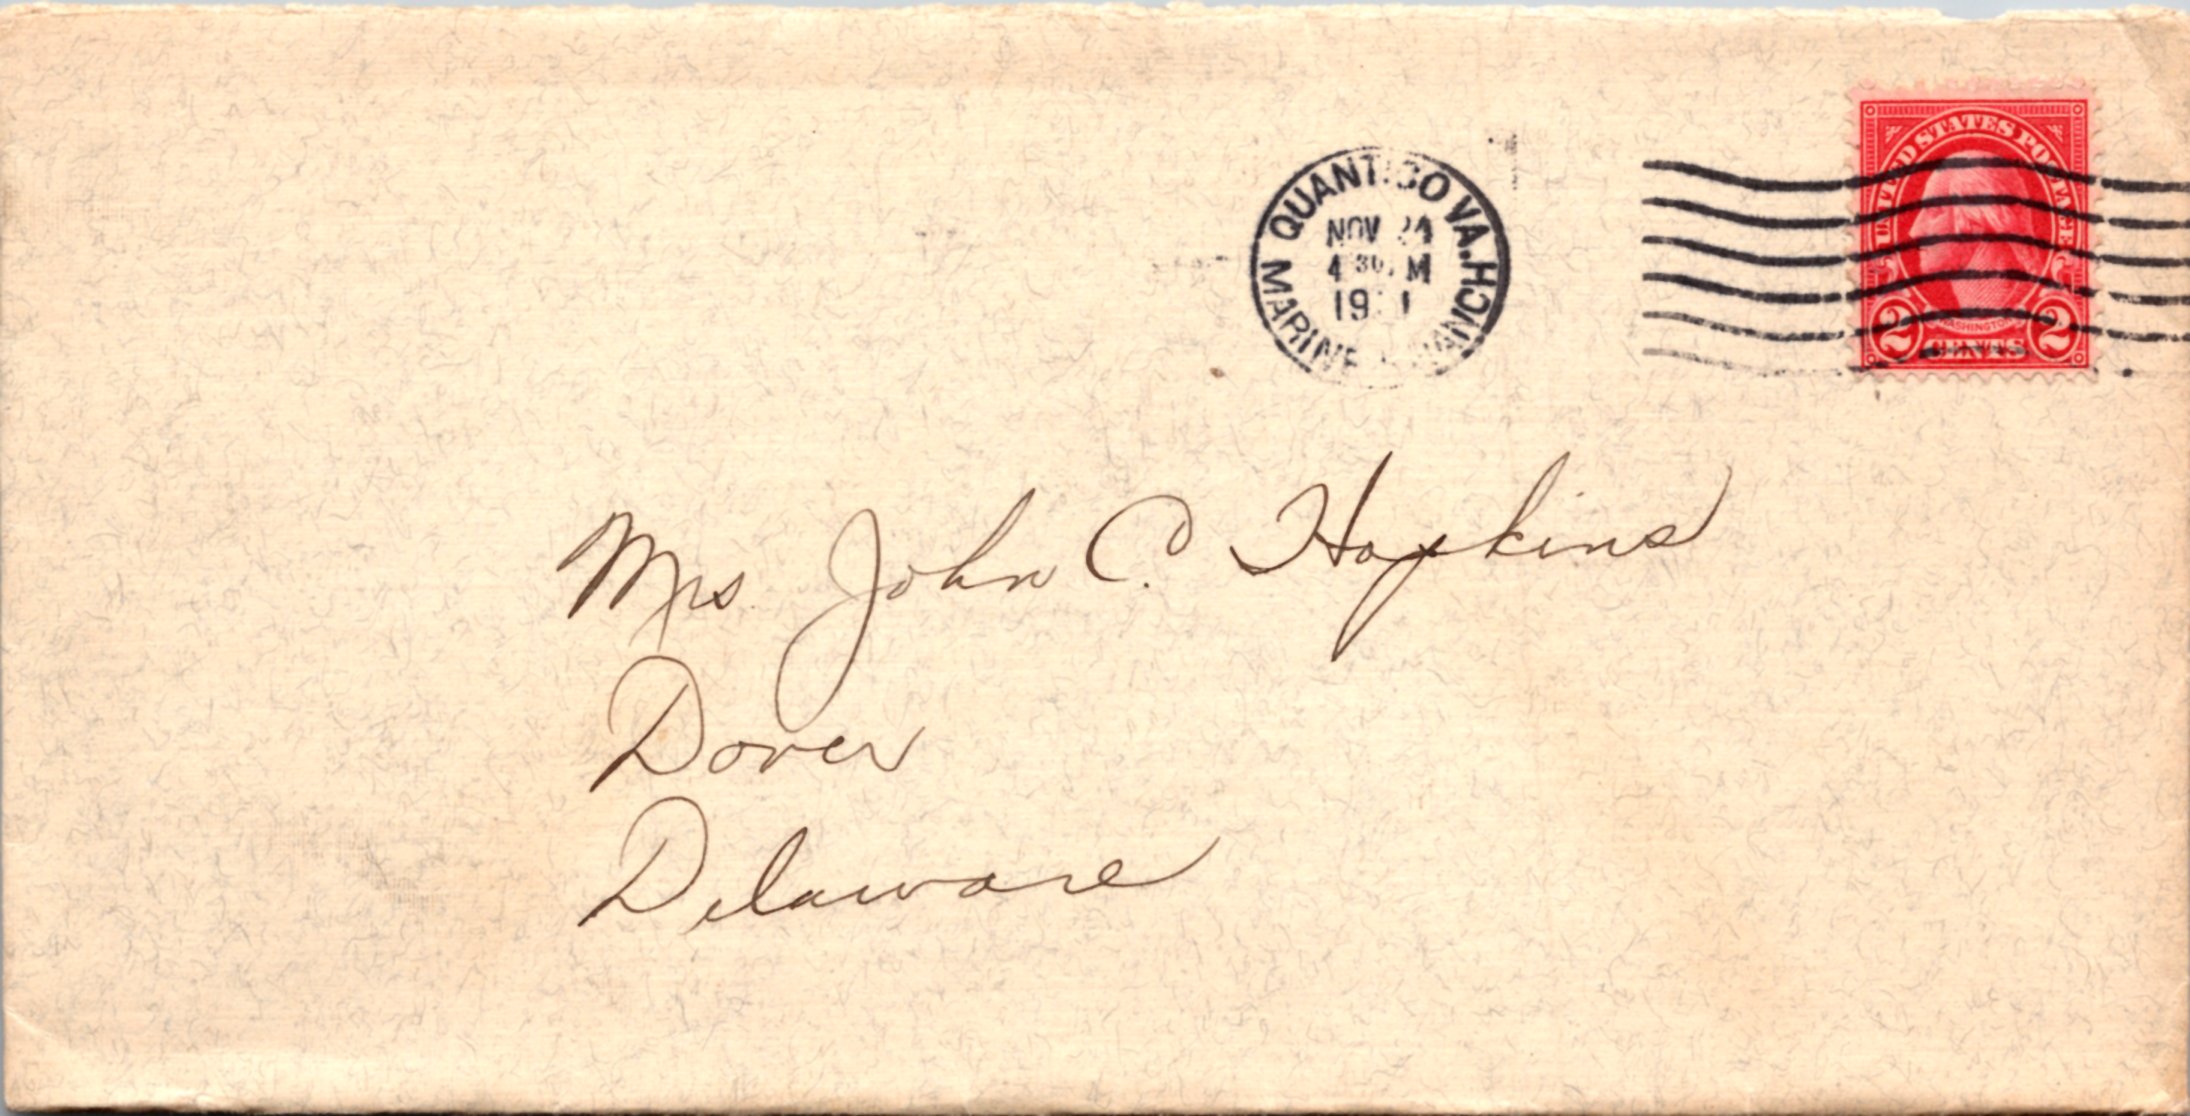 QUANTICO VA.
MARINE BRANCH
NOV 24
4 30 M
UNITED STATES POSTAGE
WASHINGTON
2 CENTS 2
Mrs. John C. Hopkins
Dover
Delaware